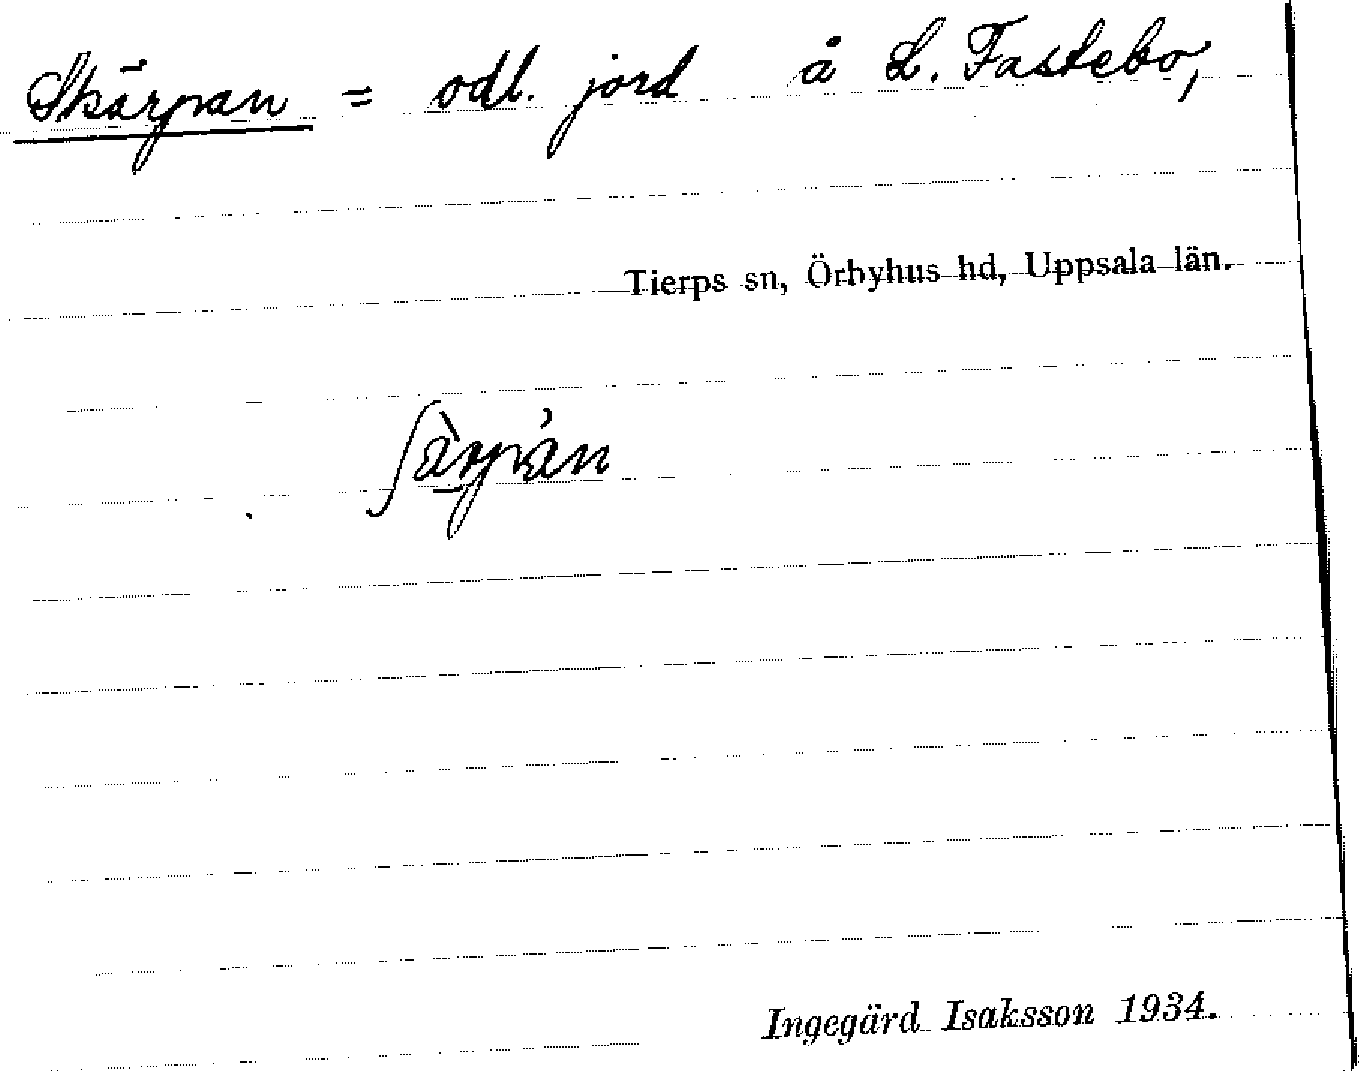 Skärpan = odl. jord å L. Fastebo,
Tierps sn, Örbyhus hd, Uppsala län.
ʃàrpán
Ingegärd Isaksson 1934.